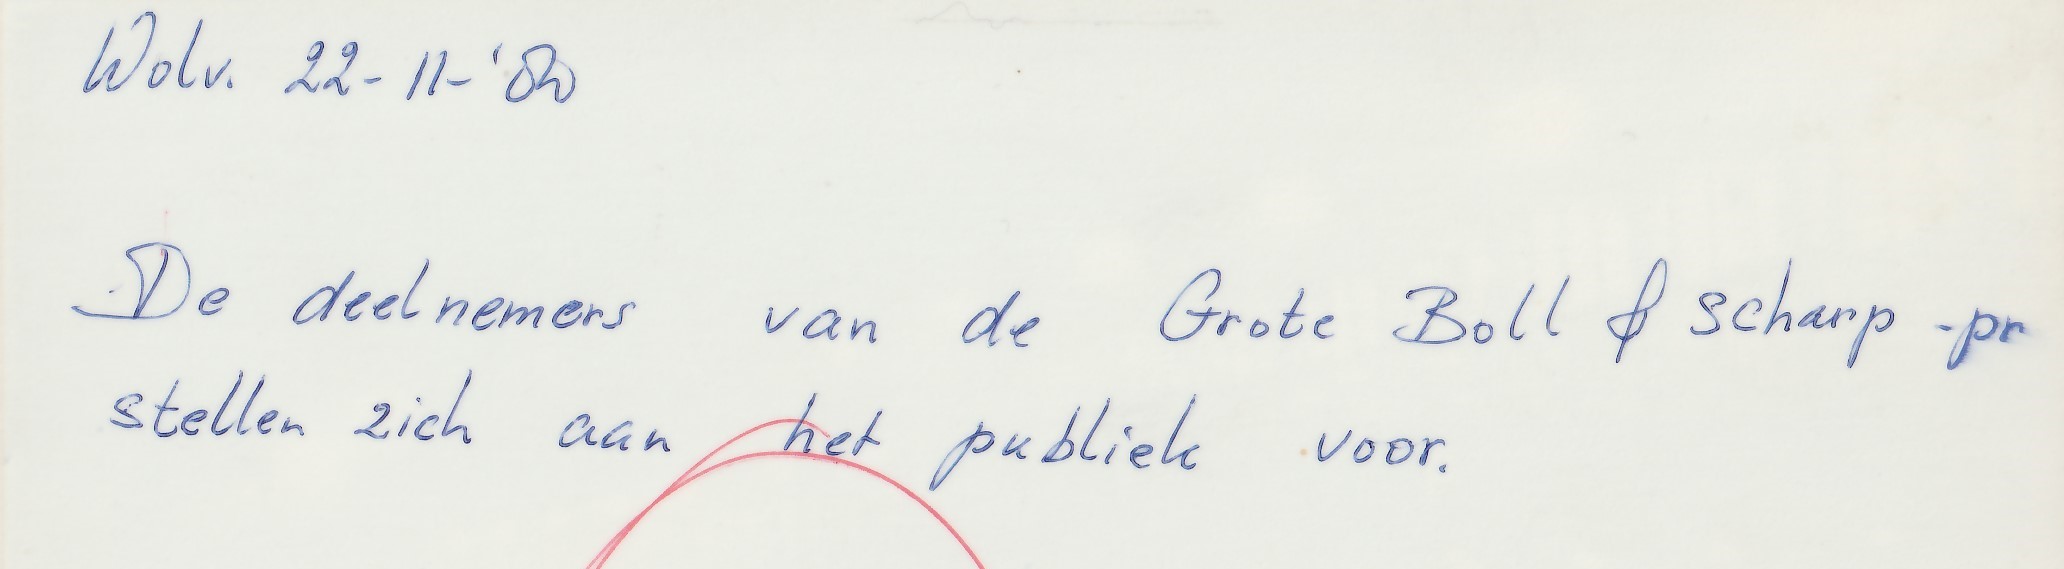 Wolv. 22-11-'80
De deelnemers van de Grote Boll & Scharp -pr
stellen zich aan het publiek voor.